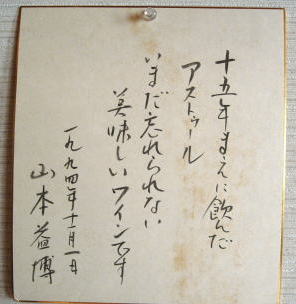 十五年まえに飲んだ
アストゥール
いまだ忘れられない
美味しいワインです
一九九四年十一月一日
山本益博